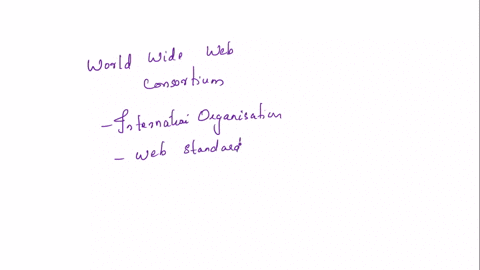 World Wide Web
Consortium
- Internatioi Organisation
- Web Standard